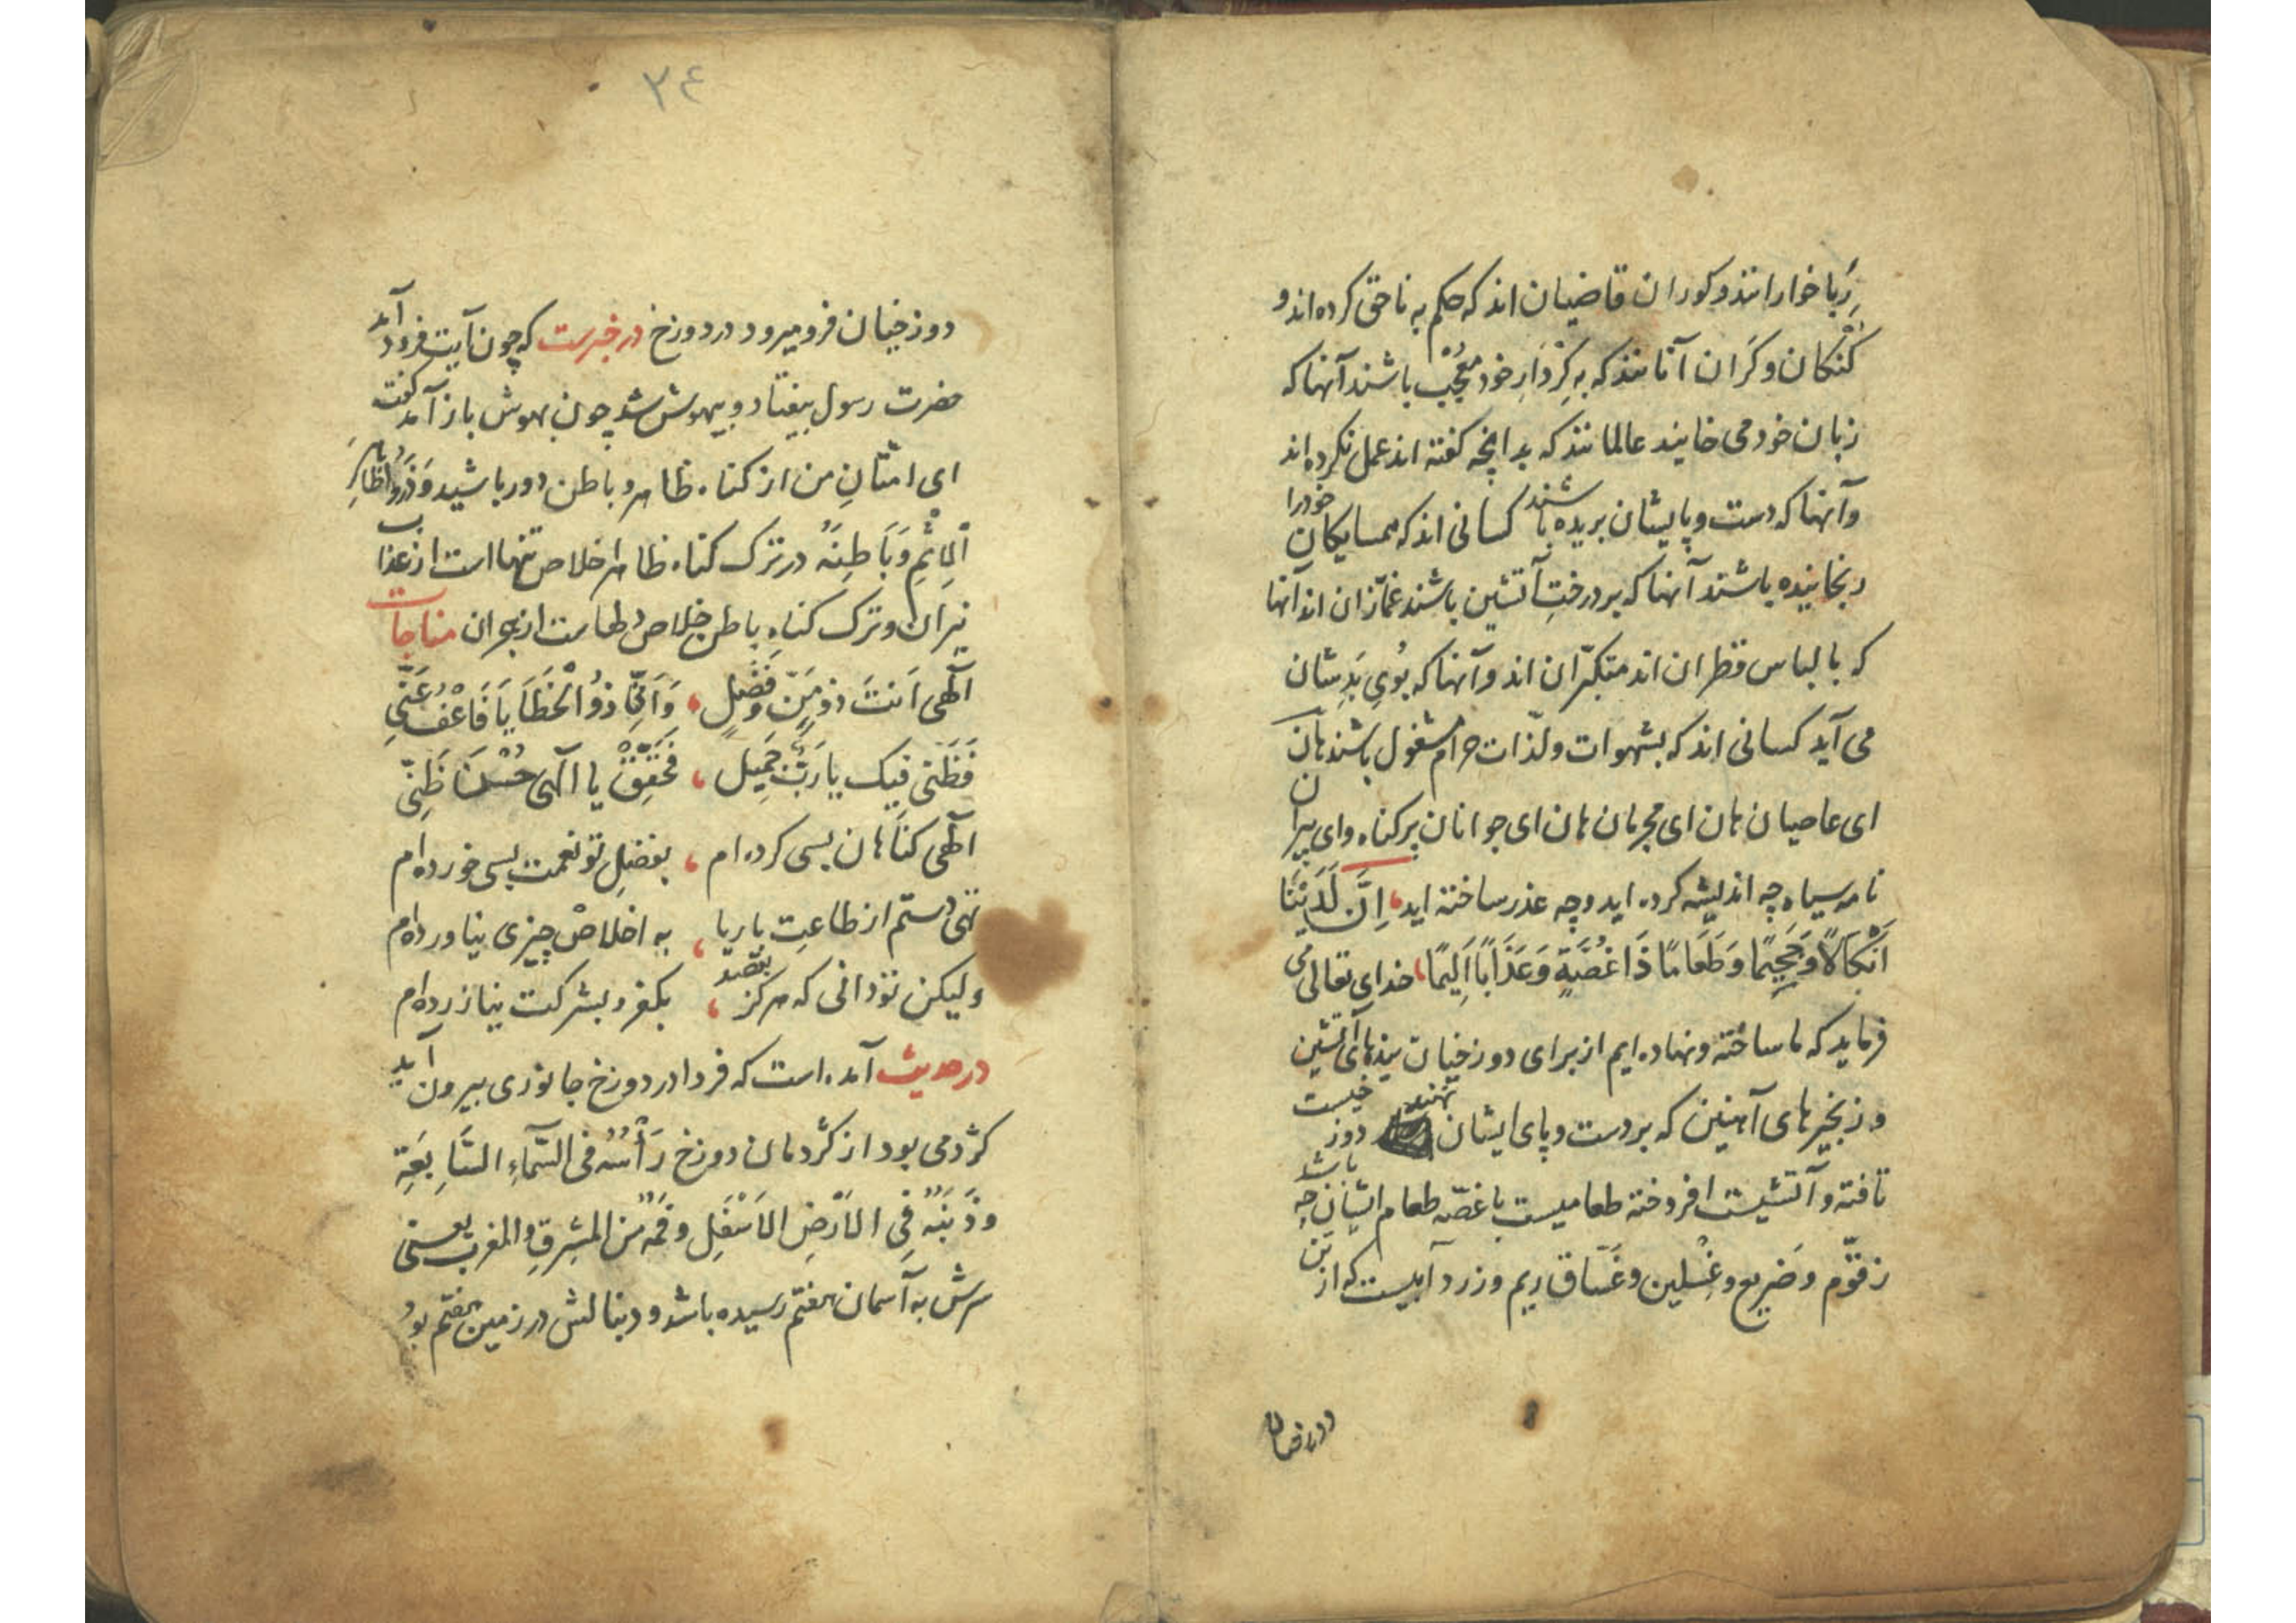 رِبا خوارانند و کوران قاضیان اند که حکم به ناحق کرده اند و
کنکان و کران آنانند که به کِردَارِ خود مُعجَب باشند آنها که
زبان خود می خایند عالمانند که بدانچه کفته اند عمل نکرده اند
وآنها که دست و پایشان بریده باشند کسانی اند که همسایکان خودرا
رنجانیده باشند آنها که بر درختِ آتشین باشند غمّازان اند آنها
که با لباس قطران اند متکبّران اند وآنها که بُویِ بَد شان
می آید کسانی اند که بشهوات و لذّات حرام مشغول باشند هان
ای عاصیان هان ای مجرمان هان ای جوانان پر کناه وای پیران
نامه سیاه چه اندیشه کرده اید و چه عذر ساخته اید اِنَّ لَدَیْنَا
اَنْکَالًا وَجَحِیمًا وَطَعَامًا ذَا غُصَّةٍ وَعَذَابًا اَلِیمًا خدای تعالی می
فرماید که ما ساخته و نهاده ایم از برای دوزخیان بندهای آتشین
و زنجیرهای آهنین که بر دست و پای ایشان نهند دوزخیست
تافته و آتشیست افروخته طعامیست با غصّه طعام ایشان چه باشد
زقّوم و ضَریع و غِسْلین و غَسّاق ریم و زرد آبیست که از تن
دوزخیان
٣٤
دوزخیان فرو میرود در دوزخ در خبرست که چون آیت فرود آمد
حضرت رسول بیفتاد و بیهوش شد چون بهوش باز آمد کفت
ای امّتانِ من از کناه ظاهر و باطن دور باشید وَذَرُوا ظَاهِرَ
اْلِاثْمِ وَبَاطِنَهُ در ترک کناه ظاهر خلاص تنها است از عذاب
نیران و ترک کناهِ باطن خلاص دلهاست از هجران مناجات
آلهی اَنتَ ذو مَنّ وَفَضْلٍ وَاَنّی ذُوُ الْخَطَایَا فَاعْفُ عَنّی
فَظَنّی فیک یا رَبّ جَمِیل فَحَقِّقْ یا آلهی حُسْنَ ظَنّی
آلهی کناهان بسی کرده ام بفضلِ تو نعمت بسی خورده ام
تهی دستم از طاعتِ با ریا به اخلاص چیزی نیاورده ام
ولیکن تو دانی که هرکز بقصد بکفر و بشرکت نیازرده ام
در حدیث آمده است که فردا در دوزخ جانوری بیرون آید
کژدمی بود از کژدمان دوزخ رَأْسُهُ فی السَّمَاءِ السَّابِعَةِ
وذَنَبُهُ فِی الاَرْضِ الاَسْفَلِ وفَمُهُ مِنَ المَشرِقِ والمغرب یعنی
سرش به آسمان هفتم رسیده باشد و دنبالش در زمین هفتم بود